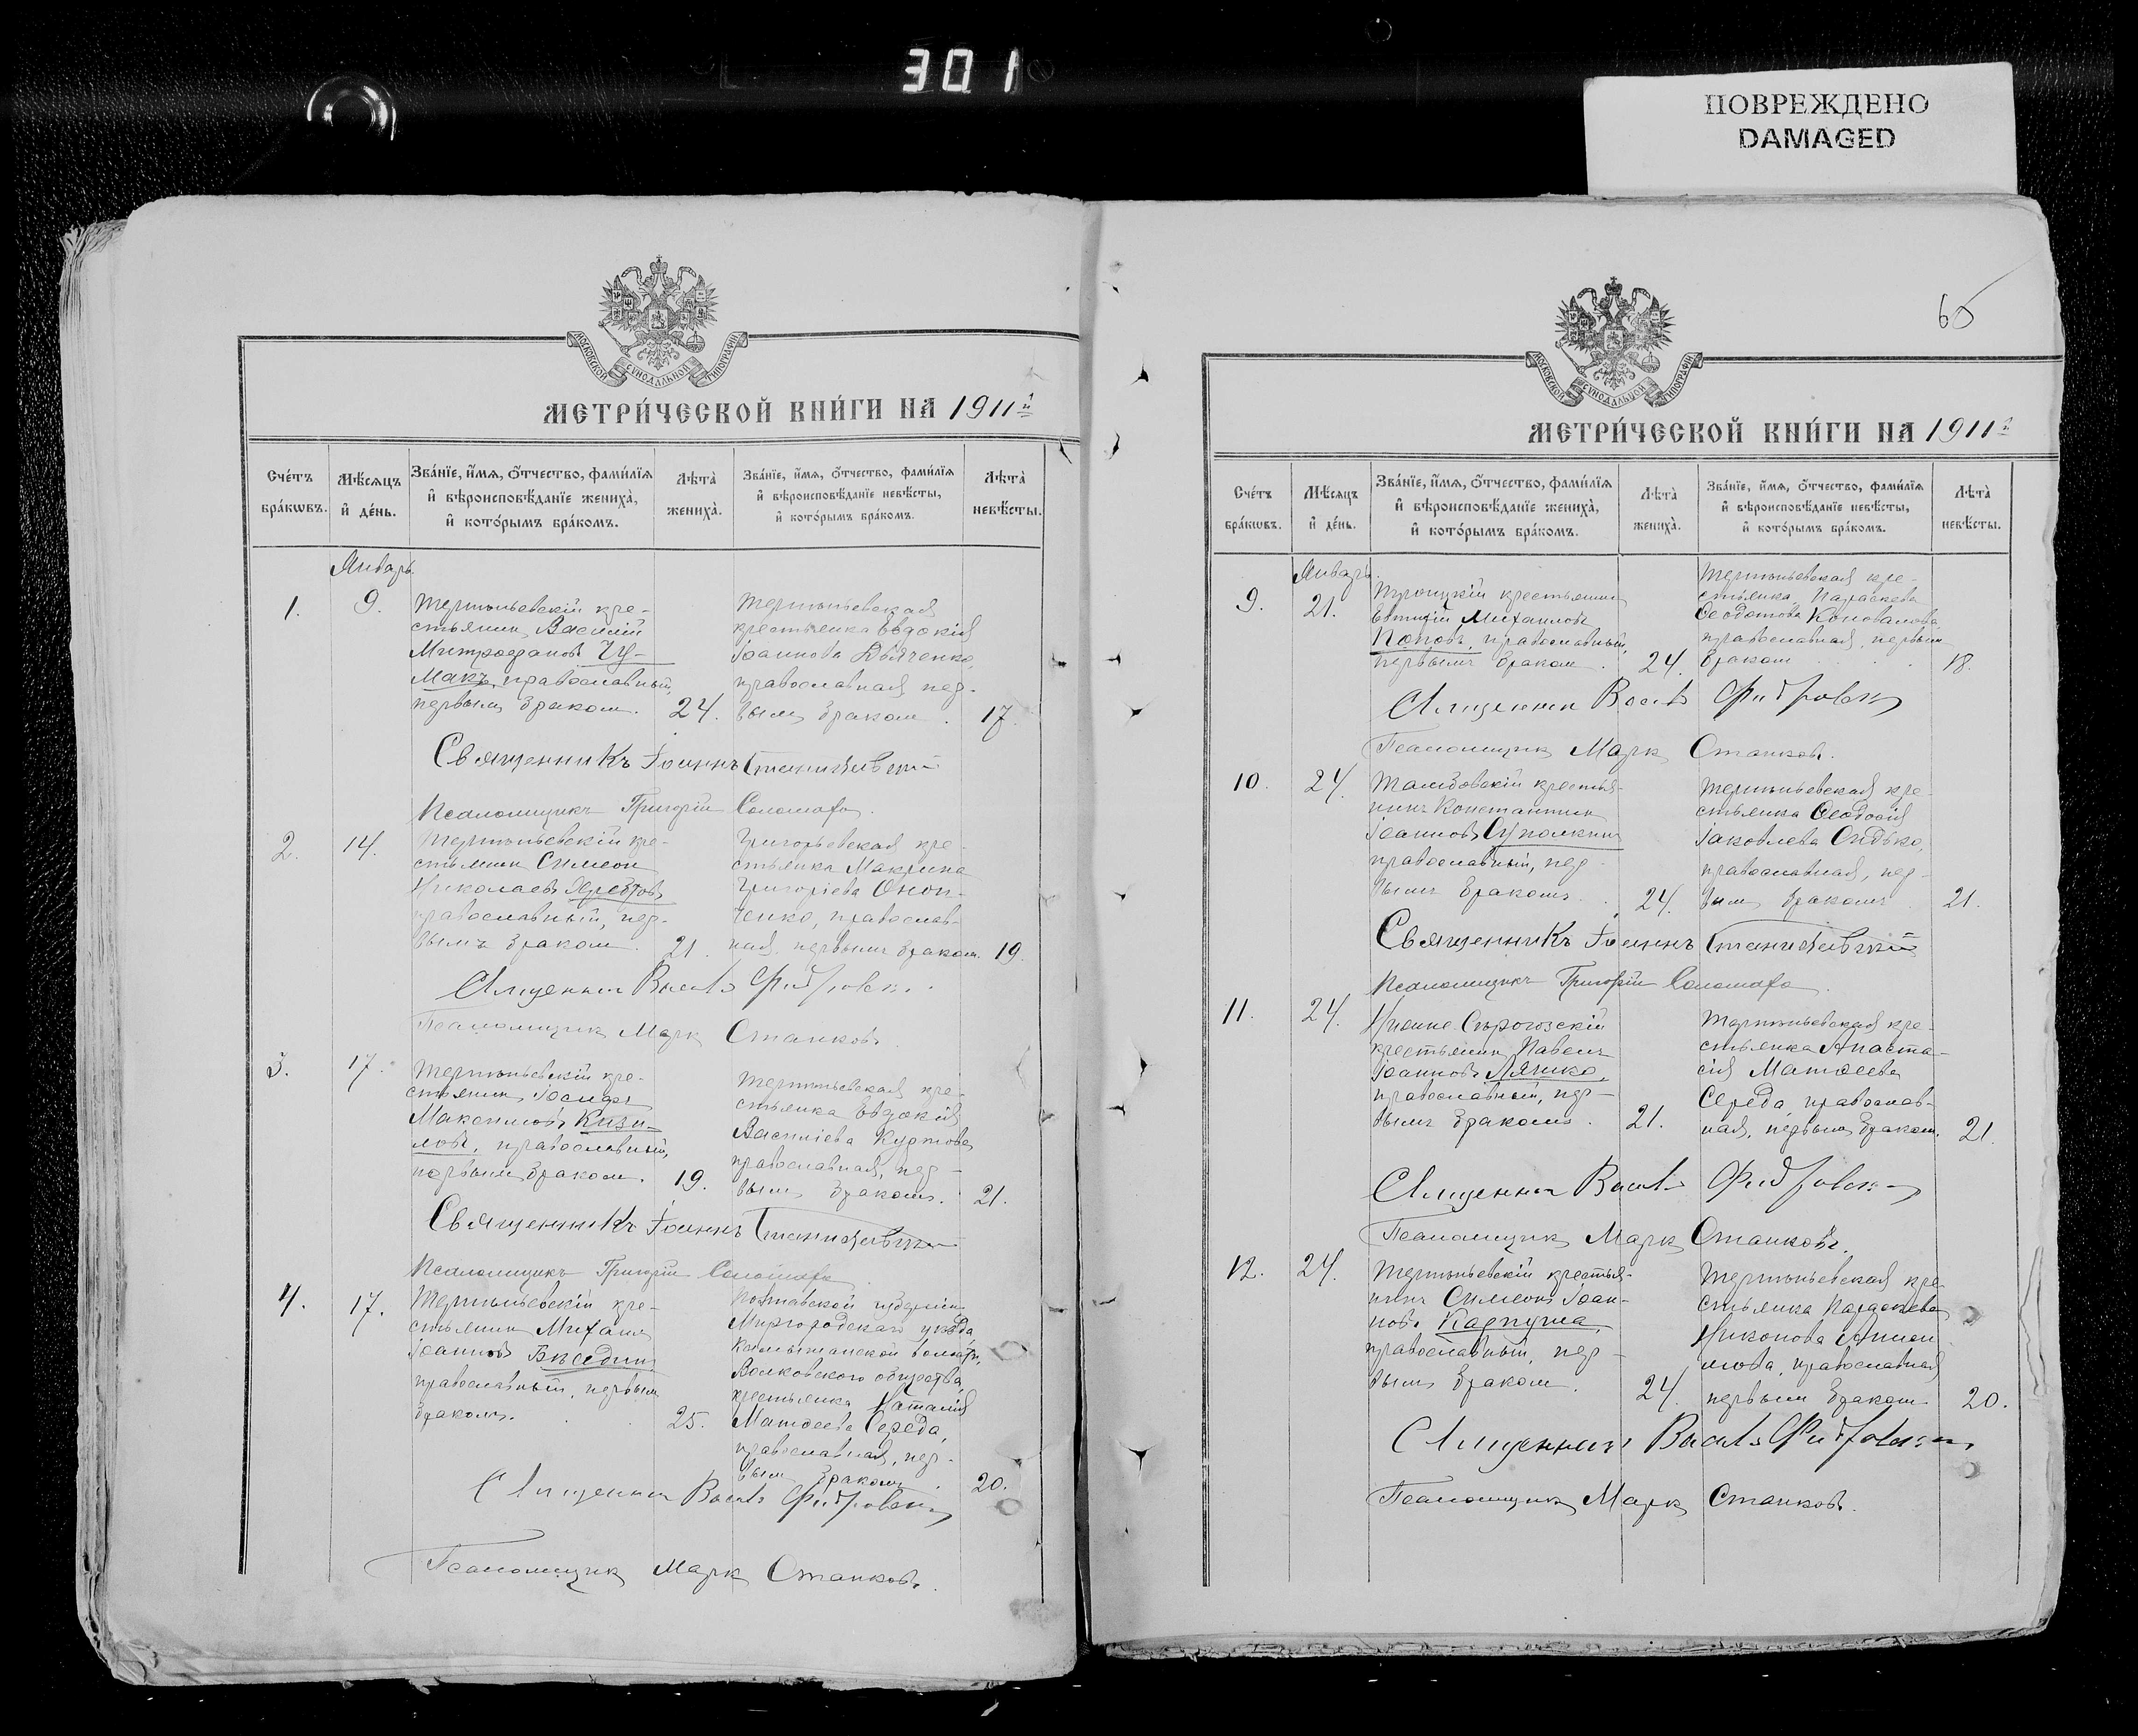 301
ПОВРЕЖДЕНО
DAMAGED
МОСКОВСКОЙ СУНОДАЛЬНОЙ ТИПОГРАФІИ
МЕТРИ́ЧЕСКОЙ КНИ́ГИ НА 1911й
Сче́тъ бра́кωвъ.
Мѣ́сяцъ и҆ де́нь.
Зва́нїе, и҆́мѧ, ѻ҆́тчество, фами́лїѧ
и҆ вѣроисповѣ́данїе женихà,
и҆ кото́рымъ бра́комъ.
Лѣ̑та̀ женихà.
Зва́нїе, и҆́мѧ, ѻ҆́тчество, фами́лїѧ
и҆ вѣроисповѣ́данїе невѣ́сты,
и҆ кото́рымъ бра́комъ.
Лѣ̑та̀ невѣ́сты.
Январь.
1.
9.
Терпѣньевскій кре-
стьянин, Василій
Митрофановъ Чу-
макъ, православный,
первым браком. 24.
Терпѣньевская
крестьянка Евдокія
Іоаннова Дьяченко,
православная пер-
вым браком. 17.
Священникъ Іоаннъ
Псаломщикъ Григорій
2.
14.
Терпѣньевскій кре-
стьянин Симеон
Николаевъ
православный, пер-
вымъ браком. 21.
Григорьевская кре-
стьянка Макрина
Григоріева Оноп-
ченко, православ-
ная, первымъ браком. 19.
Священник
Псаломщик Марк Станковъ.
3.
17.
Терпѣньевскій кре-
стьянин Іосифъ
Максимовъ Кизи-
ловъ, православный,
первым браком. 19.
Терпѣньевская кре-
стьянка Евдокія
Василіева Куртова
православная, пер-
вым браком. 21.
Священникъ Іоаннъ
Псаломщикъ Григорій
4.
17.
Терпѣньевскій кре-
стьянин Михаил
Іоанновъ
православный, первым
браком. 25.
Полтавской губерніи
Миргородскаго уѣзда,
волости,
Волковского общества,
крестьянка Наталія
Матѳеева Середа,
православная, пер-
вым браком. 20.
Священник
Псаломщик Марк Станковъ.
65
МОСКОВСКОЙ СУНОДАЛЬНОЙ ТИПОГРАФІИ
МЕТРИ́ЧЕСКОЙ КНИ́ГИ НА 1911й
Сче́тъ бра́кωвъ.
Мѣ́сяцъ и҆ де́нь.
Зва́нїе, и҆́мѧ, ѻ҆́тчество, фами́лїѧ
и҆ вѣроисповѣ́данїе женихà,
и҆ кото́рымъ бра́комъ.
Лѣ̑та̀ женихà.
Зва́нїе, и҆́мѧ, ѻ҆́тчество, фами́лїѧ
и҆ вѣроисповѣ́данїе невѣ́сты,
и҆ кото́рымъ бра́комъ.
Лѣ̑та̀ невѣ́сты.
Январь.
9.
21.
Троицкій крестьянин
Евтихій Михаиловъ
Поповъ, православный,
первымъ браком. 24.
Терпѣньевская кре-
стьянка Параскева
Ѳеодотова Коновалова
православная, первым
браком 18.
Священник
Псаломщик Марк Станковъ.
10.
24.
Тамбовскій крестья-
нинъ Константин
Іоанновъ
православный, пер-
вымъ бракомъ. 24.
Терпѣньевская кре-
стьянка Ѳеодосія
Іаковлева Сидько,
православная, пер-
вым бракомъ 21.
Священникъ Іоаннъ
Псаломщикъ Григорій
11.
24.
Нижне-Сѣрогозскій
крестьянин Павелъ
Іоанновъ Ляшко,
православный, пер-
вымъ бракомъ. 21.
Терпѣньевская кре-
стьянка Анаста-
сія Матѳеева
Середа, православ-
ная, первым браком. 21.
Священник
Псаломщик Марк Станковъ.
12.
24.
Терпѣньевскій крестья-
нинъ Симеонъ Іоан-
новъ
православный, пер-
вым браком. 24.
Терпѣньевская кре-
стьянка Параскева
Никонова
православная
первым браком 20.
Священник
Псаломщик Марк Станковъ.